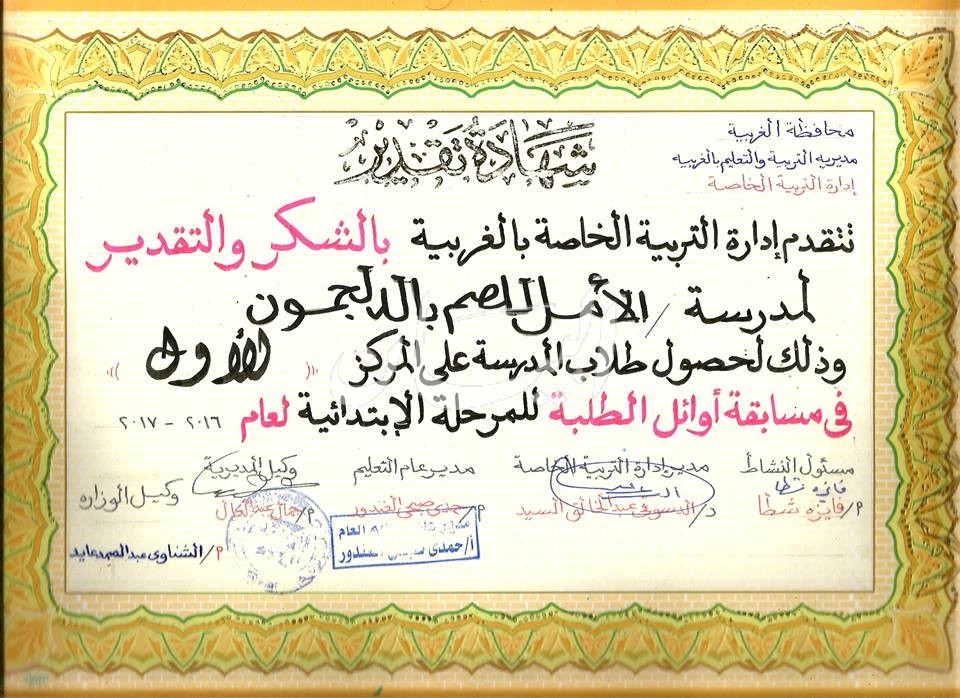 محافظة الغربية
مديرية التربية والتعليم بالغربية
إدارة التربية الخاصة
شهادة تقدير
تتقدم إدارة التربية الخاصة بالغربية بالشكر والتقدير
لمدرسة / الأمل للصم بالدلجمون
وذلك لحصول طلاب المدرسة على المركز (( الأول ))
فى مسابقة أوائل الطلبة للمرحلة الإبتدائية لعام ٢٠١٦ - ٢٠١٧
مسئول النشاط مدير إدارة التربية الخاصة مدير عام التعليم وكيل المديرية وكيل الوزاره
فايزه شطا
م/ فايزه شطا د/ الدسوقى عبد الخالق السيد م/ حمدى صبحى الغندور م/ جمال عبد العال
م/ الشناوى عبد الصمد عايد
العام
أ/ حمدى صبحى الغندور